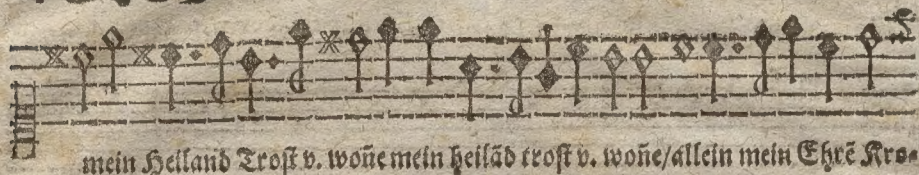 mein Heiland Trost v. woñe mein heilãd trost v. woñe/allein mein Ehrẽ Kro⸗